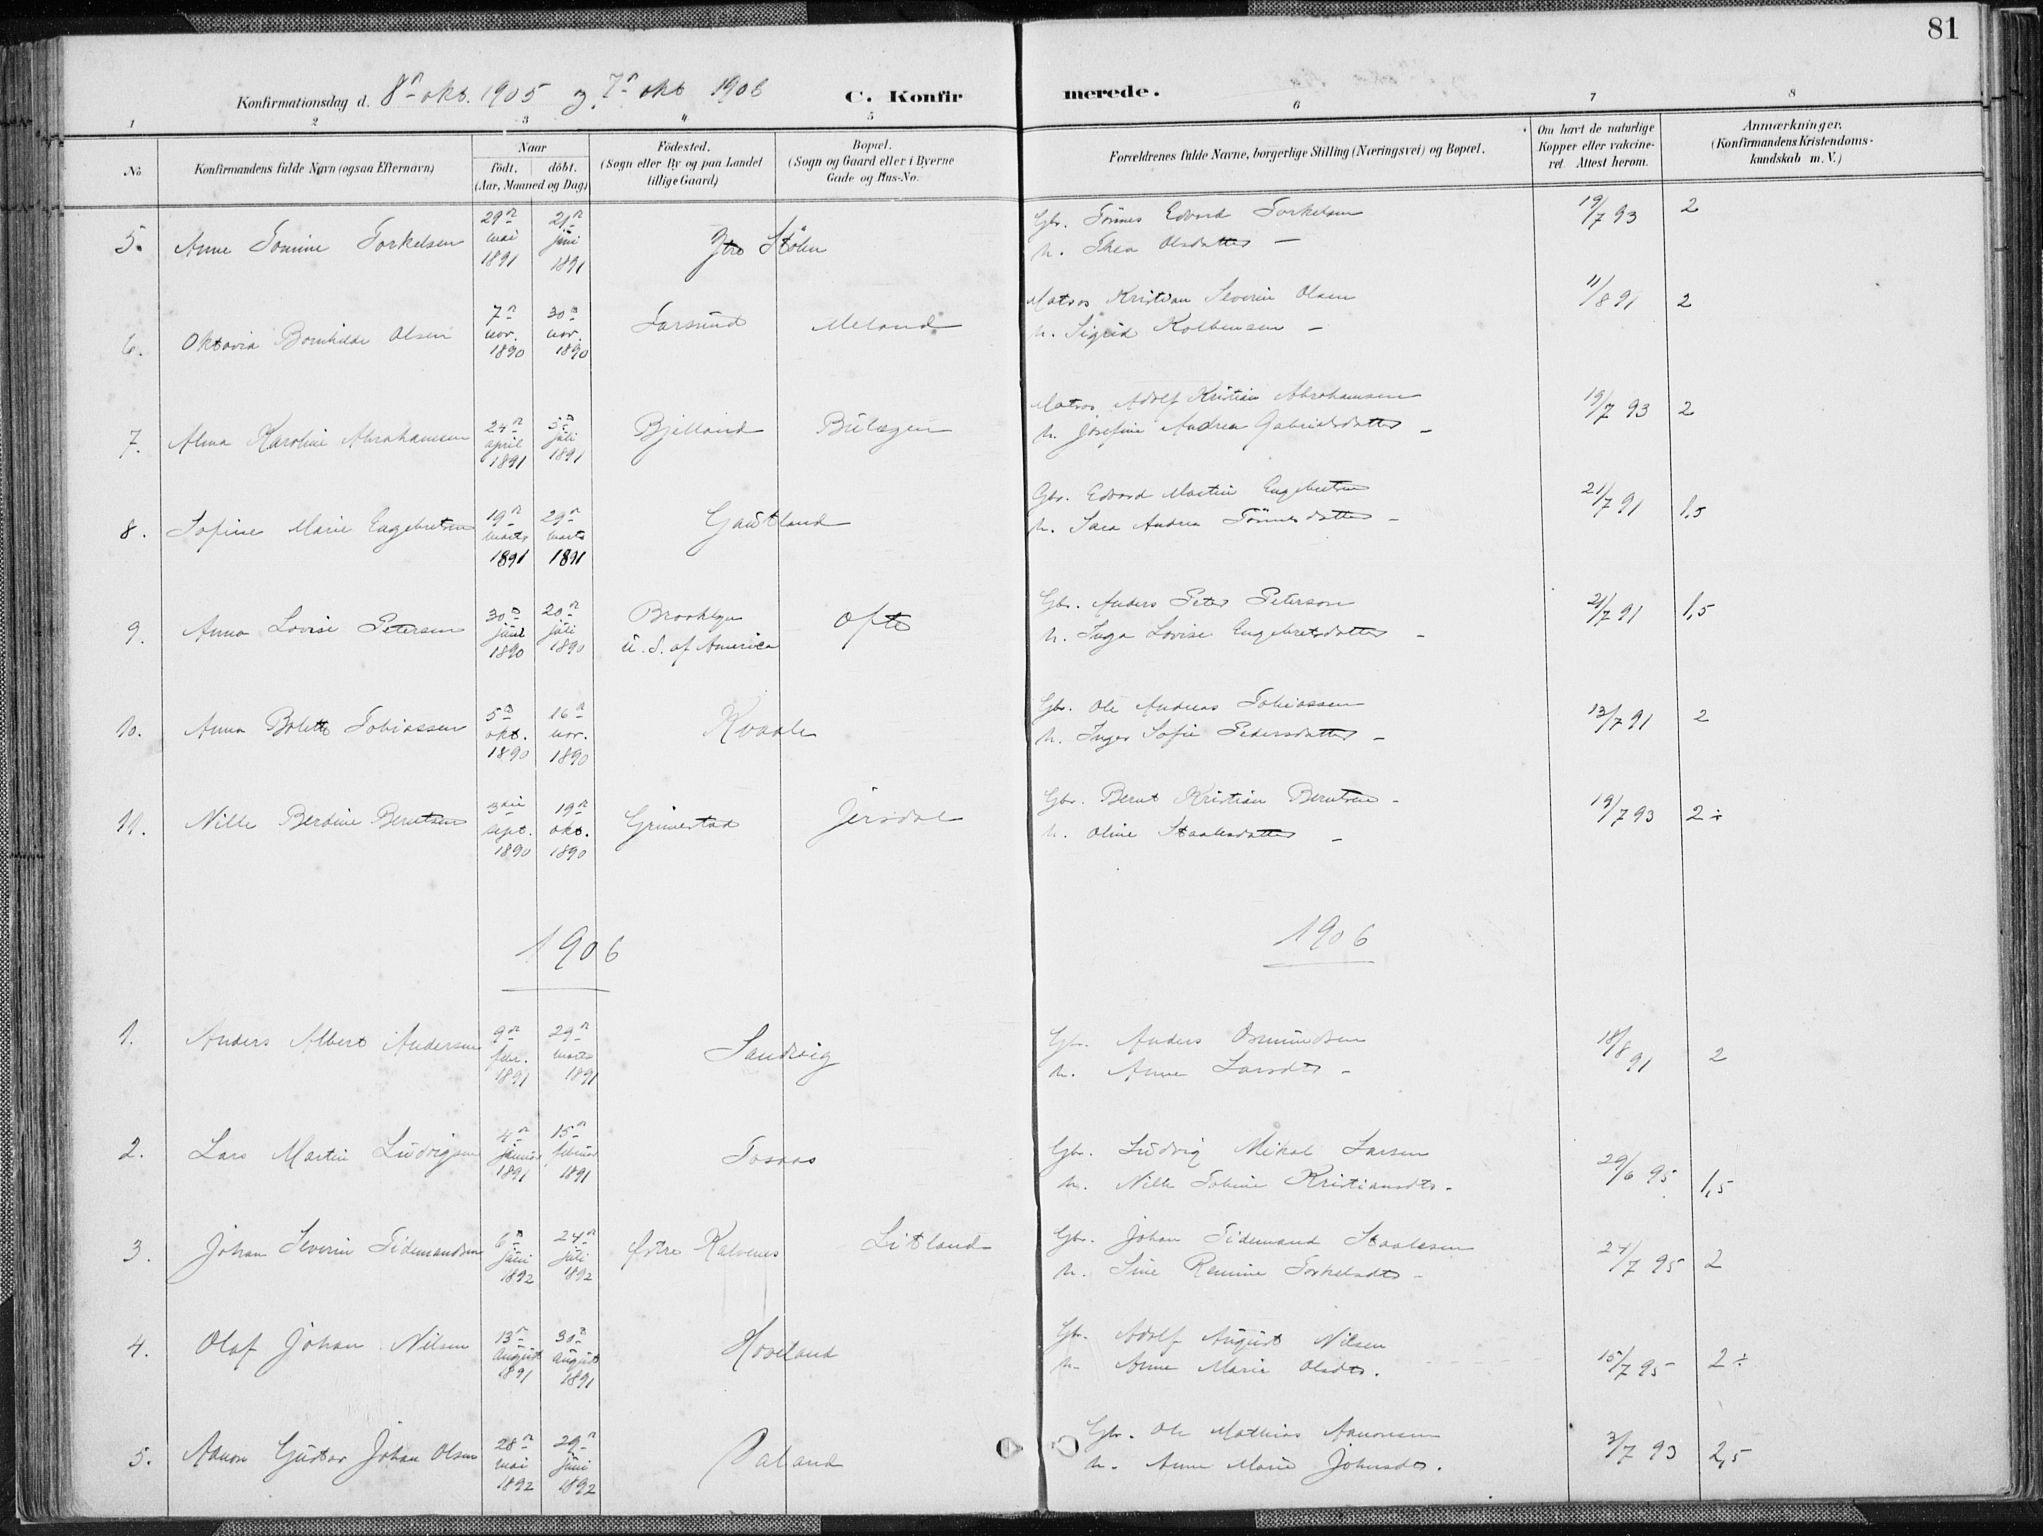 81
Konfirmationsdag d. 8n okt. 1905 og 7n okt 1906 C. Konfirmerede.
1 2 3 4 5 6 7 8
No Konfirmandens fulde Navn (ogsaa Efternavn)
Naar födt. döbt. (Aar, Maaned og Dag)
Födested. (Sogn eller By og paa Landet tillige Gaard)
Bopæl. (Sogn og Gaard eller i Byerne Gade og Hus-No.
Forældrenes fulde Navne, borgerlige Stilling (Næringsvei) og Bopæl.
Om havt de naturlige Kopper eller vakcineret. Attest herom.
Anmærkninger. (Konfirmandens Kristendomskundskab m. V.)
5. Anne Tomine Torkelsen 29n mai 1891 21n juni 1891 Ytre Støln
Gbr. Tønnes Edvard Torkelsen
h. Thea Olsdatter –
19/7 93 2
6. Oktavia Bornhilde Olsen 7n nov. 1890 30n nov. 1890 Farsund Meland
Matros Kristian Severin Olsen
h. Sigrid Kolbensen –
11/8 91 2
7. Alma Karoline Abrahamsen 24n april 1891 5n juli 1891 Bjelland Bulægen
Matros Adolf Kristian Abrahamsen
h. Josefine Andrea Gabrielsdatter –
19/7 93 2
8. Sofine Marie Engebretsen 19n marts 1891 29n marts 1891 Gautland
Gbr. Edvard Martin Engebretsen
h. Sara Andrea Tönnesdatter –
21/7 91 1,5
9. Anna Lovise Petersen 30n juni 1890 20n juli 1890 Brooklyn U. S. of America Ofte
Gbr. Anders Peter Peterson
h. Inga Lovise Engebretsdatter –
21/7 91 1,5
10. Anna Bolette Tobiassen 5n okt. 1890 16n nov. 1890 Kvaale
Gbr. Ole Andreas Tobiassen
h. Inger Sofie Pedersdatter –
13/7 91 2
11. Nille Berdine Berntsen 3die sept. 1890 19n okt. 1890 Grimestad Jersdal
Gbr. Bernt Kristian Berntsen –
h. Oline Staalesdatter –
19/7 93 2÷
1906 1906
1. Anders Albert Andersen 9n febr. 1891 29n marts 1891 Sandvig
Gbr. Anders Osmundsen
h. Anne Larsdtr –
18/8 91 2
2. Lars Martin Ludvigsen 4n januar 1891 15n februar 1891 Tosaas
Gbr. Ludvig Mikal Larsen
h. Nille Tobine Kristiansdtr.
29/6 95 1,5
3. Johan Severin Tidemandsen 6n juni 1892 24n juli 1892 Østre Kalvenes Litland
Gbr. Johan Tidemand Staalesen
h. Sine Remine Torkelsdtr –
24/7 95 2
4. Olaf Johan Nilsen 13n august 1891 30n august 1891 Hoveland
Gbr. Adolf August Nilsen
h. Anne Marie Olsdtr.
15/7 95 2÷
5. Aanon Gustav Johan Olsen 28n mai 1892 29n juni 1892 Paland
Gbr. Ole Mathias Aanonsen
h. Anne Marie Johnsdtr.
3/7 93 2,5